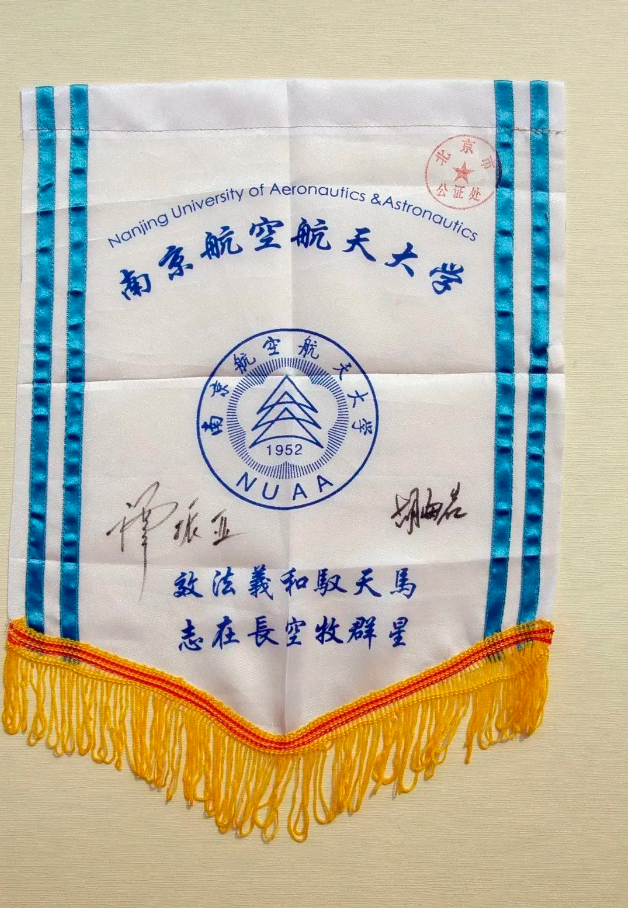 北京市
公证处
Nanjing University of Aeronautics &Astronautics
南京航空航天大学
南京航空航天大学
1952
NUAA
谭振亚
胡海岩
效法義和馭天馬
志在長空牧群星